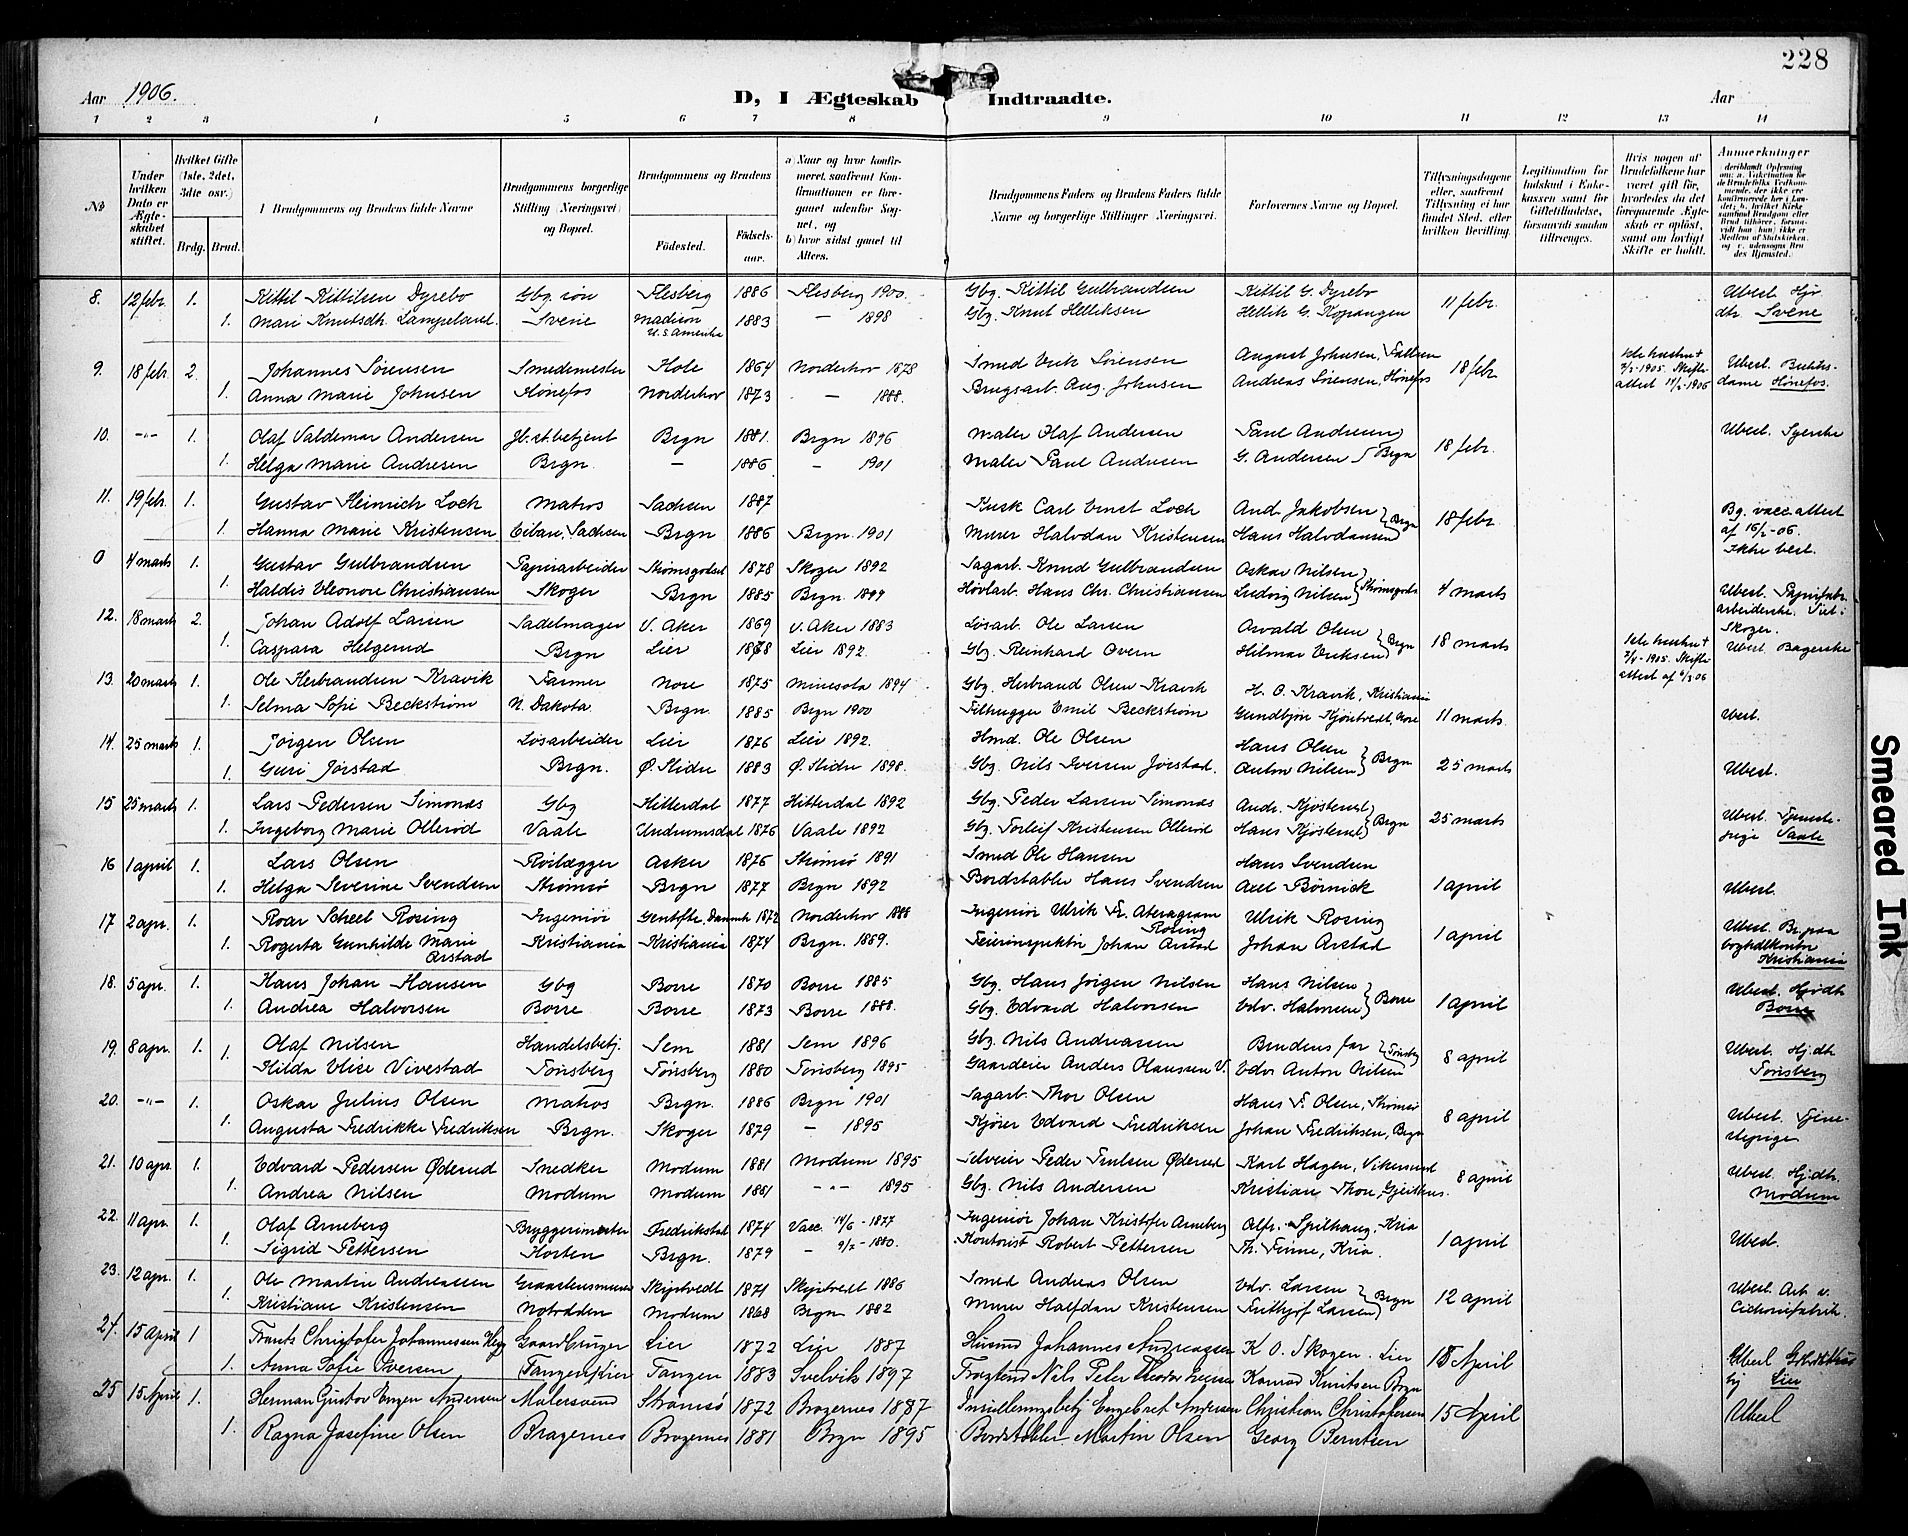 228
Aar 1906.
D, I Ægteskab Indtraadte.
Aar
1 2 3 4 5 6 7 8 9 10 11 12 13 14
No
Under hvilken Dato er Ægteskabet stiftet.
Hvilket Gifte (1ste, 2det, 3dte osr.)
Brdg. Brud.
I Brudgommens og Brudens fulde Navne
Brudgommens borgerlige Stilling (Næringsvei) og Bopæl.
Brudgommens og Brudens
Fødested. Fødselsaar.
a) Naar og hvor konfirmeret, saafremt Konfirmationen er foregaaet udenfor Sognet, og
b) hvor sidst gaaet til Alters.
Brudgommens Faders og Brudens Faders fulde Navne og borgerlige Stillinger (Næringsvei.
Forlovernes Navne og Bopæl.
Tillysningsdagene eller, saafremt Tillysning ei har fundet Sted, efter hvilken Bevilling.
Legitimation for Indskud i Enkekassen samt for Giftetilladelse, forsaavidt saadan tiltrænges.
Hvis nogen af Brudefolkene har været gift før, hvorledes da det foregaaende Ægteskab er opløst, samt om lovligt Skifte er holdt.
Anmerkninger
8. 12 febr. 1. Kittil Kittilsen Dyrebo Gbg. søn Flesberg 1886 Flesberg 1900. Gbg. Kittil Gulbrandsen Kittil G. Dyrebo 11 febr. Ubesl. Hjv
1. Mari Knutsdtr. Lampeland. Svene Madison U.S. Amerika 1883 — 1898 Gbg. Knut Helliksen Hellik G. Kopangen dtr Svene
9. 18 febr. 2. Johannes Sørensen Smedemester Hole 1864 Norderhov 1878 Smed Erik Sørensen August Johnsen, 18 febr. 1ste hustru + 2/3-1905. Skifteattest 14/2-1906 Ubesl.
1. Anna Marie Johnsen Hönefos Norderhov 1873 — 1888. Brugsarb. Aug. Johnsen Andreas Sørensen, Hönefos dame Hönefos.
10. —"— 1. Olaf Valdemar Andersen Jb.st.betjent Brgn 1881. Brgn 1896 Maler Olaf Andersen Paul Andresen 18 febr. Ubesl. Syerske
1. Helga Marie Andresen Brgn. — 1886 — 1901 Maler Paul Andresen G. Andersen } Brgn
11. 19 febr. 1. Gustav Heinrich Loch Matros Sachsen 1887 Kusk Carl Ernst Loch And. Jakobsen 18 febr. Bg. vacc. attest af 16/2-06.
1. Hanna Marie Kristensen Eibau, Sachsen Brgn 1886 Brgn. 1901 Murer Halvdan Kristensen Hans Halvdansen } Brgn Ikke besl.
0 4 marts 1. Gustav Gulbrandsen Papirarbeider Strømsgodset 1878 Skoger 1892 Sagarb. Knud Gulbrandsen Oskar Nilsen 4 marts Ubesl. Papirfabr.
1. Haldis Eleonore Christiansen Skoger Brgn 1885 Brgn. 1899 Høvlarb. Hans Chr. Christiansen Ludvig Nilsen } Strømsgods arbeiderske. Viet i Skoger.
12. 18 marts 2. Johan Adolf Larsen Sadelmager V. Aker 1869 V. Aker 1883 Løsarb. Ole Larsen Arvald Olsen 18 marts 1ste hustru + 2/4-1905. Skifteattest af 8/3 06 Ubesl. Bagerske
1. Caspara Helgerud Brgn Lier 1878 Lier 1892. Gbg. Reinhard Overn Hilmar Eriksen } Brgn
13. 20 marts 1. Ole Herbrandsen Kravik Farmer Nore 1875 Minesota 1894 Gbg. Herbrand Olsen Kravik H. O. Kravik, Kristiania
1. Selma Sofie Beckstrøm N. Dakota. Brgn. 1885 Brgn 1900 Filhugger Emil Beckstrøm Gundbjør Kjøntvedt, Nore 11 marts Ubesl.
14. 25 marts 1. Jørgen Olsen Løsarbeider Lier 1876 Lier 1892. Hmd. Ole Olsen Hans Olsen
1. Guri Jørstad Brgn. Ø. Slidre 1883 Ø. Slidre 1898. Gbg. Nils Iversen Jørstad. Anton Nilsen } Brgn 25 marts Ubesl.
15 25 marts 1. Lars Pedersen Simonæs Gbg Hitterdal 1877 Hitterdal 1892 Gbg. Peder Larsen Simonæs Andr. Kjøsterud 25 marts Ubesl. Tjeneste-
1. Ingeborg Marie Ollerød Vaale Undrumsdal 1876 Vaale 1892 Gbg. Torleif Kristensen Ollerød Hans Kjøsterud } Brgn pige Vaale
16 1 april 1. Lars Olsen Rørlægger Asker 1876 Strømsø 1891 Smed Ole Hansen Hans Svendsen
1. Helga Severine Svendsen Strømsø Brgn 1877 Brgn 1892 Bordstabler Hans Svendsen Axel Børnick 1 april Ubesl.
17 2 apr. 1. Roar Scheel Rosing Ingeniør Gentofte, Danmark 1872 Norderhov 1888 Ingeniør Ulrik Fr. Rosing Ulrik Rosing 1 april Ubesl.
1. Rogerta Gunhilde Marie Arstad Kristiania Kristiania 1874 Brgn. 1889. Feierinspektør Johan Arstad Johan Arstad Kristiania
18. 5 apr. 1. Hans Johan Hansen Gbg Borre 1870 Borre 1885 Gbg. Hans Jørgen Nilsen Hans Nilsen 1 april Ubesl. Hjvdtr
1. Andrea Halvorsen Borre Borre 1873 Borre 1888. Gbg. Edvard Halvorsen Edv. Halvorsen } Borre Borre
19. 8 apr. 1. Olaf Nilsen Handelsbetj. Sem 1881 Sem 1896 Gbg. Nils Andreassen Brudens far 8 april Ubesl. Hj.dtr
1. Hilda Elise Vivestad Tønsberg Tønsberg 1880 Tønsberg 1895 Gaardeier Anders Olaussen V. Edv. Anton Nilsen } Tønsbg Tønsberg
20. —"— 1. Oskar Julius Olsen Matros Brgn. 1886 Brgn 1901 Sagarb. Thor Olsen Hans F. Olsen, Strømsø 8 april Ubesl. Tjene-
1. Augusta Fredrikke Fredriksen Brgn. Skoger 1879 — 1895 Kjører Edvard Fredriksen Johan Fredriksen, Brgn stepige
21. 10 apr. 1. Edvard Pedersen Øderud Snedker Modum 1881 Modum 1895 Selveier Peder Øderud Karl Hagen, Vikersund 8 april Ubesl. Hj.dtr
1. Andrea Nilsen Modum Modum 1881 —"— 1895 Gbg. Nils Andersen Kristian Thon, Gjeithus. Modum
22. 11 apr. 1. Olaf Arneberg Bryggerimester Fredrikstad 1874 Vacc. 14/6-1877 Ingeniør Johan Kristofer Arneberg Alfr. Spilhaug, Kria 1 april Ubesl.
1. Sigrid Pettersen Horten Brgn. 1879 — 9/2-1880. Kontorist Robert Pettersen Th. Finne, Kria.
23. 12 apr. 1. Ole Martin Andreassen Skiptvedt 1871 Skiptvedt 1886 Smed Andreas Olsen Edv. Larsen 12 april Ubesl. Arb. v.
1. Kristiane Kristensen Notodden Modum 1868 Brgn 1882 Murer Halfdan Kristensen Frithjof Larsen } Brgn Cichoriefabrik.
24. 15 April 1 Frants Christofer Johannessen Gaardbruger Lier 1872 Lier 1887 Husmd Johannes Andreassen K O. Skogen. Lier 15 April Ubesl
1. Anna Sofie Iversen Tangen Lier Tangen 1883 Svelvik 1897 Nils Peter Theodor Iversen Konrad Knutsen Brgn Lier
25 15 April 1. Herman Gustav Engen Andersen Malersvend Strømsø 1872 Bragernes 1887 Engebret Andersen Christian Christofersen 15 April Ubesl
1. Ragna Josefine Olsen Bragernes Bragernes 1881 Brgn 1895 Bordstabler Martin Olsen Georg Berntsen
Smeared Ink